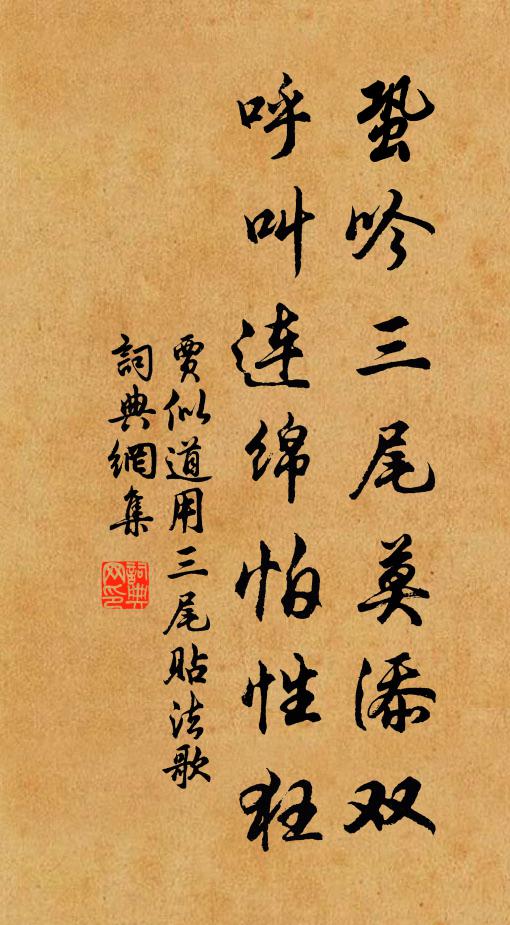 蛩吟三尾莫添双
呼叫连绵怕性狂
賈似道用三尾貼法歌
詞典網集
詞典
网印